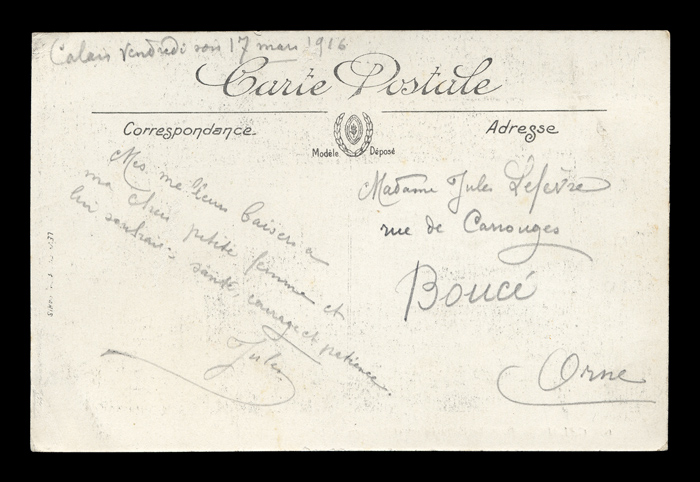 Calais vendredi soir 17 mars 1916
Carte Postale
Correspondance
Adresse
Modèle Déposé
Mes meilleurs baisers a
ma chère petite femme et
lui souhait santé, courage et patience.
Jules
Madame Jules Lefevre
rue de Carrouges
Boucé
Orne